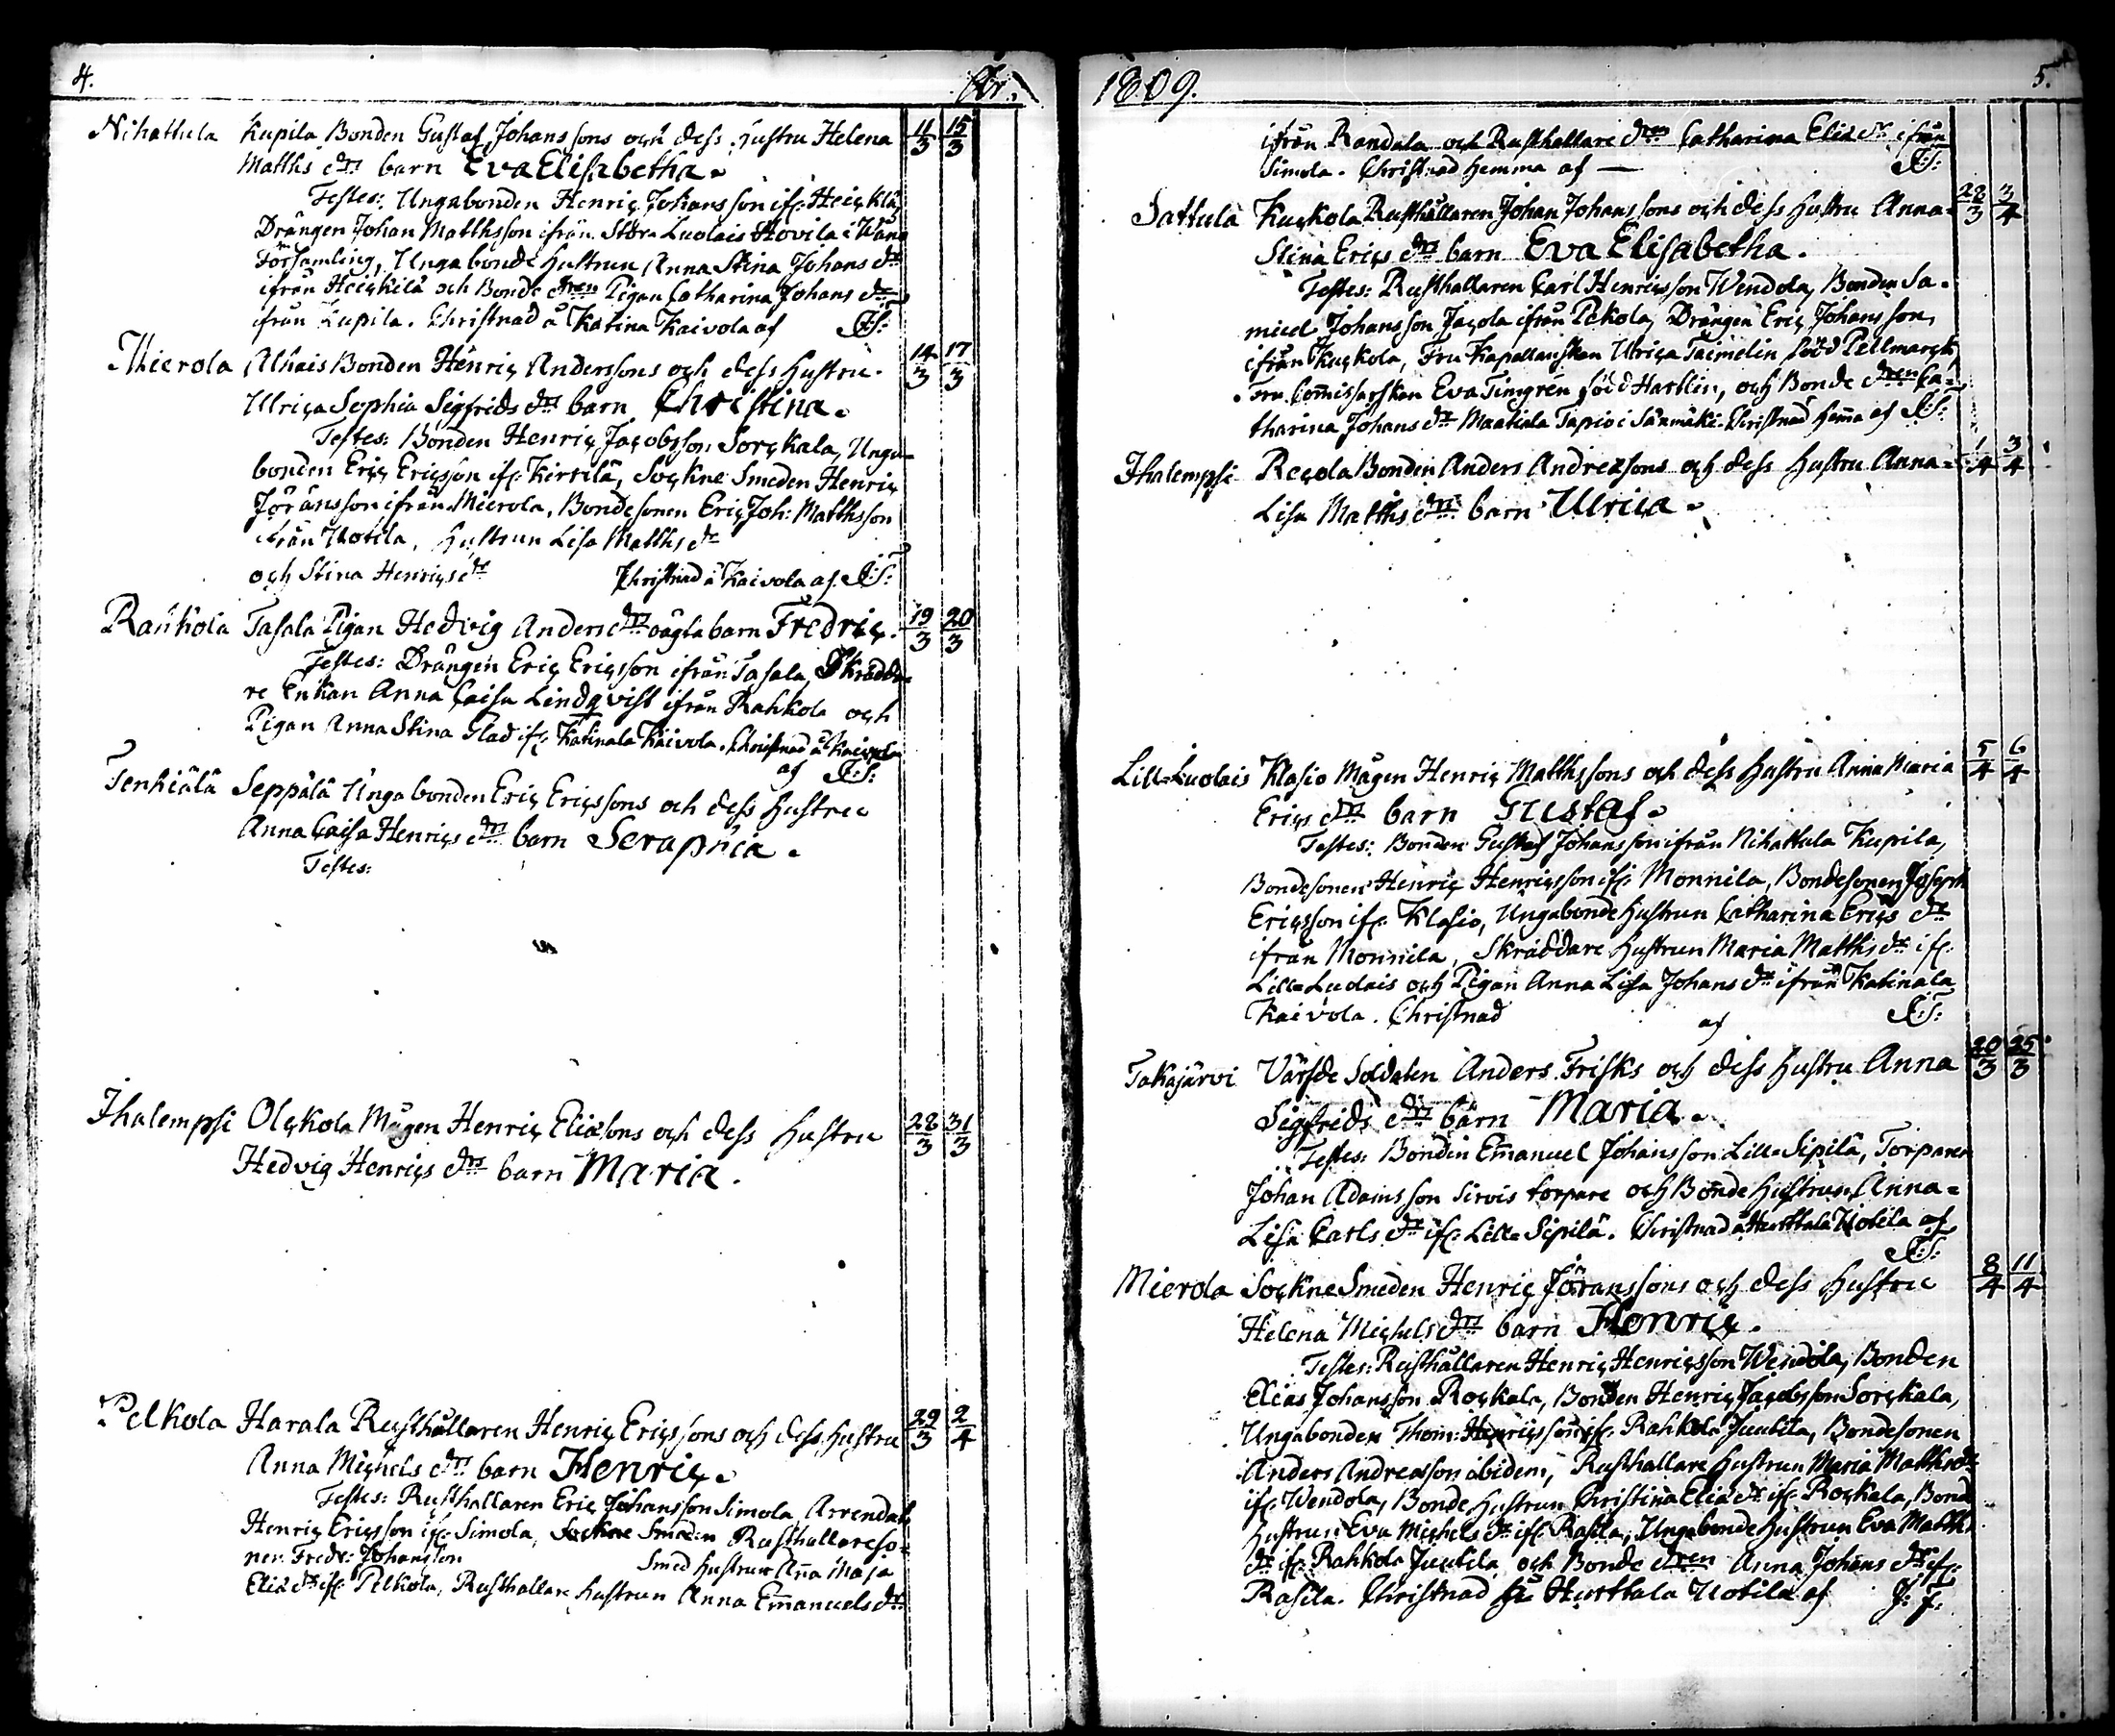 4. År.
Nihattula Kupila Bonden Gustaf Johanssons och dess Hustru Helena 11/3 15/3
Matths drs barn Eva Elisabetha.
Testes: Ungabonden Henric Johansson ifr: Heickilä,
Drängen Johan Matthsson ifrån Stora Luolais Hovila i Wånå
Församling, Ungabonde Hustrun Anna Stina Johans dr
ifrån Heickilä och Bonde dren Pigan Catharina Johans dr
ifrån Kupila. Christnad å Katina Kaivola af
Mierola Alhais Bonden Henric Anderssons och dess Hustru 14/3 17/3
Ulrica Sophia Sigfrids drs barn Christina.
Testes: Bonden Henric Jacobsson Sorckala, Unga-
bonden Eric Ericsson ifr: Kirrilä, Sockne Smeden Henric
Jöransson ifrån Mierola, Bondesonen Eric Joh: Matthsson
ifrån Uotila, Hustrun Lisa Matths dr
och Stina Henrics dr Christnad å Kaivola af
Rauhola Tasala Pigan Hedvig Anders drs oägta barn Fredric. 19/3 20/3
Testes: Drängen Eric Ericsson ifrån Tasala, Skrädda-
re Enkan Anna Caisa Lindqvist ifrån Rahkola och
Pigan Anna Stina Glad ifr: Katinala Kaivola. Christnad å Kaivola
af
Tenhiälä Seppälä Ungabonden Eric Ericssons och dess Hustru
Anna Caisa Henrics drs barn Seraphia.
Testes:
Ihalempsi Olckola Mågen Henric Eliæsons och dess Hustru 28/3 31/3
Hedvig Henrics drs barn Maria.
Pelkola Harala Rusthållaren Henric Ericssons och dess Hustru 29/3 2/4
Anna Michels drs barn Henric.
Testes: Rusthållaren Eric Johansson Simola, Arrendat:
Henric Ericsson ifr: Simola, Sockne Smeden Rusthållareso-
nen Fredr: Johansson Smed Hustrun Ana Maja
Eliæ dr ifr: Pelkola, Rusthållare Hustrun Anna Emanuels dr
1809. 5.
ifrån Randala och Rusthållare dren Catharina Eliæ dr ifrån
Simola. Christnad hemma af —
Sattula Kuckola Rusthållaren Johan Johanssons och dess Hustru Anna- 28/3 3/4
Stina Erics drs barn Eva Elisabetha.
Testes: Rusthållaren Carl Henricsson Wendola, Bonden Sa-
muel Johansson Jacola ifrån Pekola, Drängen Eric Johansson
ifrån Kuckola, Fru Kapellanskan Ulrica Taimelin född Pellmarck,
Fru Comissarskan Eva Timgrén född Hartlin, och Bonde dren Ca-
tharina Johans dr Maatiala Taprio i Säxmäki. Christnad hema af
Ihalempsi Recola Bonden Anders Andreæsons och dess Hustru Anna- 1/4 3/4
Lisa Matths drs barn Ulrica.
Lill-Luolais Klasio Mågen Henric Matthssons och dess Hustru Anna Maria 5/4 6/4
Erics drs barn Gustaf.
Testes: Bonden Gustaf Johansson ifrån Nihattula Kupila,
Bondesonen Henric Henricsson ifr: Monnila, Bondesonen Joseph
Ericsson ifr: Klasio, Ungabonde Hustrun Catharina Erics dr
ifrån Monnila, Skräddare Hustrun Maria Matths dr ifr:
Lill-Luolais och Pigan Anna Lisa Johans dr ifrån Katinala
Kaivola. Christnad af
Takajärvi Värfde Soldaten Anders Frisks och dess Hustru Anna 20/3 25/3
Sigfrids drs barn Maria.
Testes: Bonden Emanuel Johansson Lill-Sipilä, Torparen
Johan Adamsson Sirvis torpare och Bonde Hustrun Anna-
Lisa Carls dr ifr: Lill-Sipilä. Christnad å Hurttala Uotila af
Mierola Sockne Smeden Henric Jöranssons och dess Hustru 8/4 11/4
Helena Michels drs barn Henric.
Testes: Rusthållaren Henric Henricsson Wendola, Bonden
Elias Johansson Rockala, Bonden Henric Jacobsson Sorckala,
Ungabonden Thom: Henricsson ifr: Rahkola Juutila, Bondesonen
Anders Andreæsson ibidem, Rusthållare Hustrun Maria Matths dr
ifr: Wendola, Bonde Hustrun Christina Eliæ dr ifr: Rockala, Bond
Hustrun Eva Michels dr ifr: Rasila, Ungabonde Hustrun Eva Matths
dr ifr: Rahkola Juutila och Bonde dren Anna Johans dr ifr:
Rasila. Christnad å Hurttala Uotila af